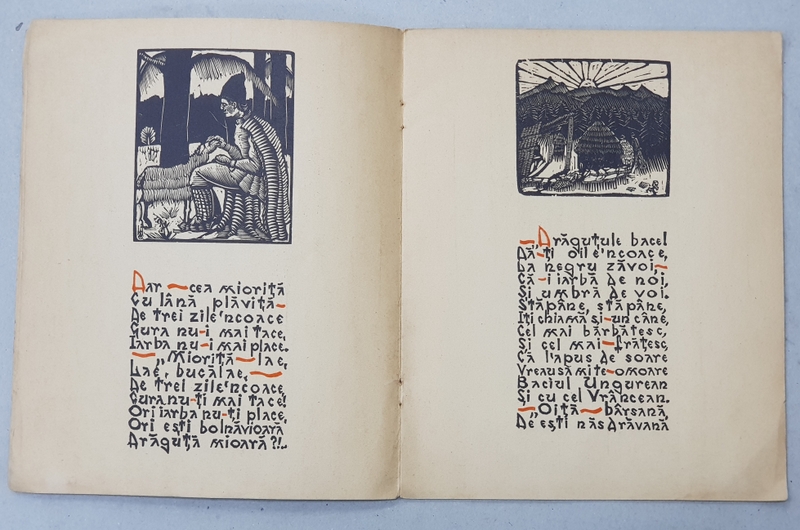 Dar — cea mioriță
Cu lână plăviță —
De trei zile 'ncoace
Gura nu-i mai tace,
Iarba nu-i mai place.
— „Mioriță — lae,
Lae, bucălae, —
De trei zile 'ncoace
Gura nu-ți mai tace!
Ori iarba nu-ți place,
Ori ești bolnăvioară
Drăguță mioară?!..
— „Drăguțule bace!
Dă-ți oile 'ncoace,
La negru zăvoi, —
Că-i iarbă de noi,
Și umbră de voi.
Stăpâne, stăpâne,
Iți chiamă și-un câne,
Cel mai bărbătesc,
Și cel mai — frățesc,
Că l'apus de soare
Vreau să mi te-omoare
Baciul Ungurean
Și cu cel Vrâncean.
— „Oiță — bârsană,
De ești năsdrăvană